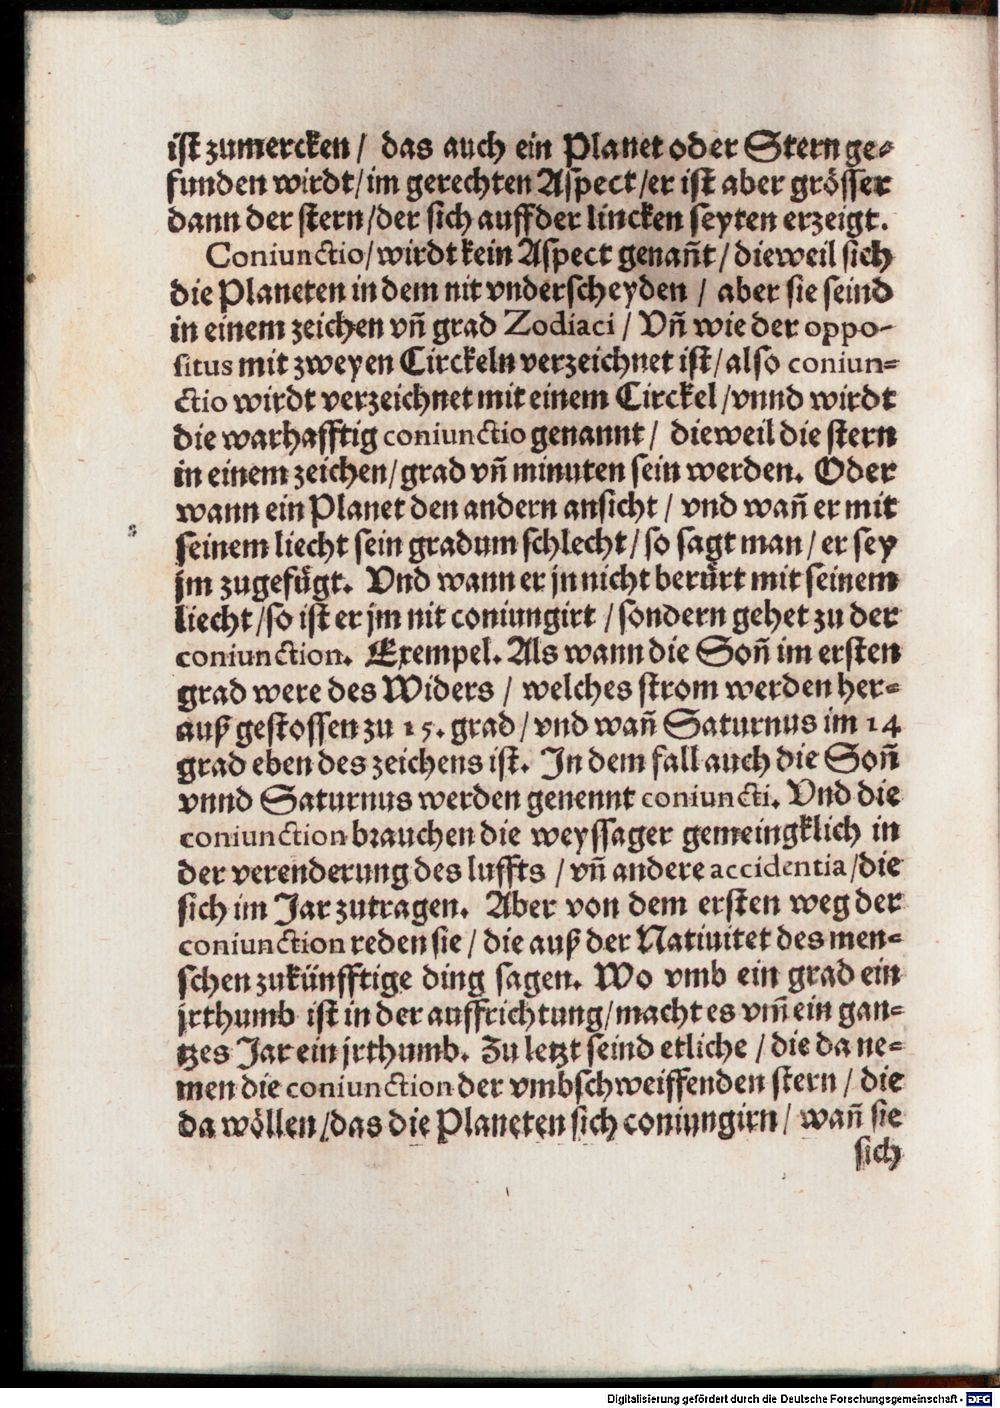 ist zumercken / das auch ein Planet oder Stern ge-
funden wirdt/im gerechten Aspect/er ist aber grösser
dann der stern/der sich auff der lincken seyten erzeigt.
Coniunctio/wirdt kein Aspect genañt/dieweil sich
die Planeten in dem nit vnderscheyden / aber sie seind
in einem zeichen vñ grad Zodiaci / Vñ wie der oppo-
situs mit zweyen Circkeln verzeichnet ist/also coniun=
ctio wirdt verzeichnet mit einem Circkel/vnnd wirdt
die warhafftig coniunctio genannt/ dieweil die stern
in einem zeichen/grad vñ minuten sein werden. Oder
wann ein Planet den andern ansicht/ vnd wañ er mit
seinem liecht sein gradum schlecht/so sagt man/er sey
jm zugefügt. Vnd wann er jn nicht berürt mit seinem
liecht/so ist er jm nit coniungirt /sondern gehet zu der
coniunction. Exempel. Als wann die Soñ im ersten
grad were des Widers / welches strom werden her=
auß gestossen zu 15. grad/vnd wañ Saturnus im 14
grad eben des zeichens ist. In dem fall auch die Soñ
vnnd Saturnus werden genennt coniuncti. Vnd die
coniunction brauchen die weyssager gemeingklich in
der verenderung des luffts /vñ andere accidentia/die
sich im Jar zutragen. Aber von dem ersten weg der
coniunction reden sie/die auß der Natiuitet des men=
schen zukünfftige ding sagen. Wo vmb ein grad ein
jrthumb ist in der auffrichtung/macht es vm̃ ein gan=
tzes Jar ein jrthumb. Zu letzt seind etliche /die da ne=
men die coniunction der vmbschweiffenden stern / die
da wöllen/das die Planeten sich coniungirn/ wañ sie
sich
Digitalisierung gefördert durch die Deutsche Forschungsgemeinschaft - DFG